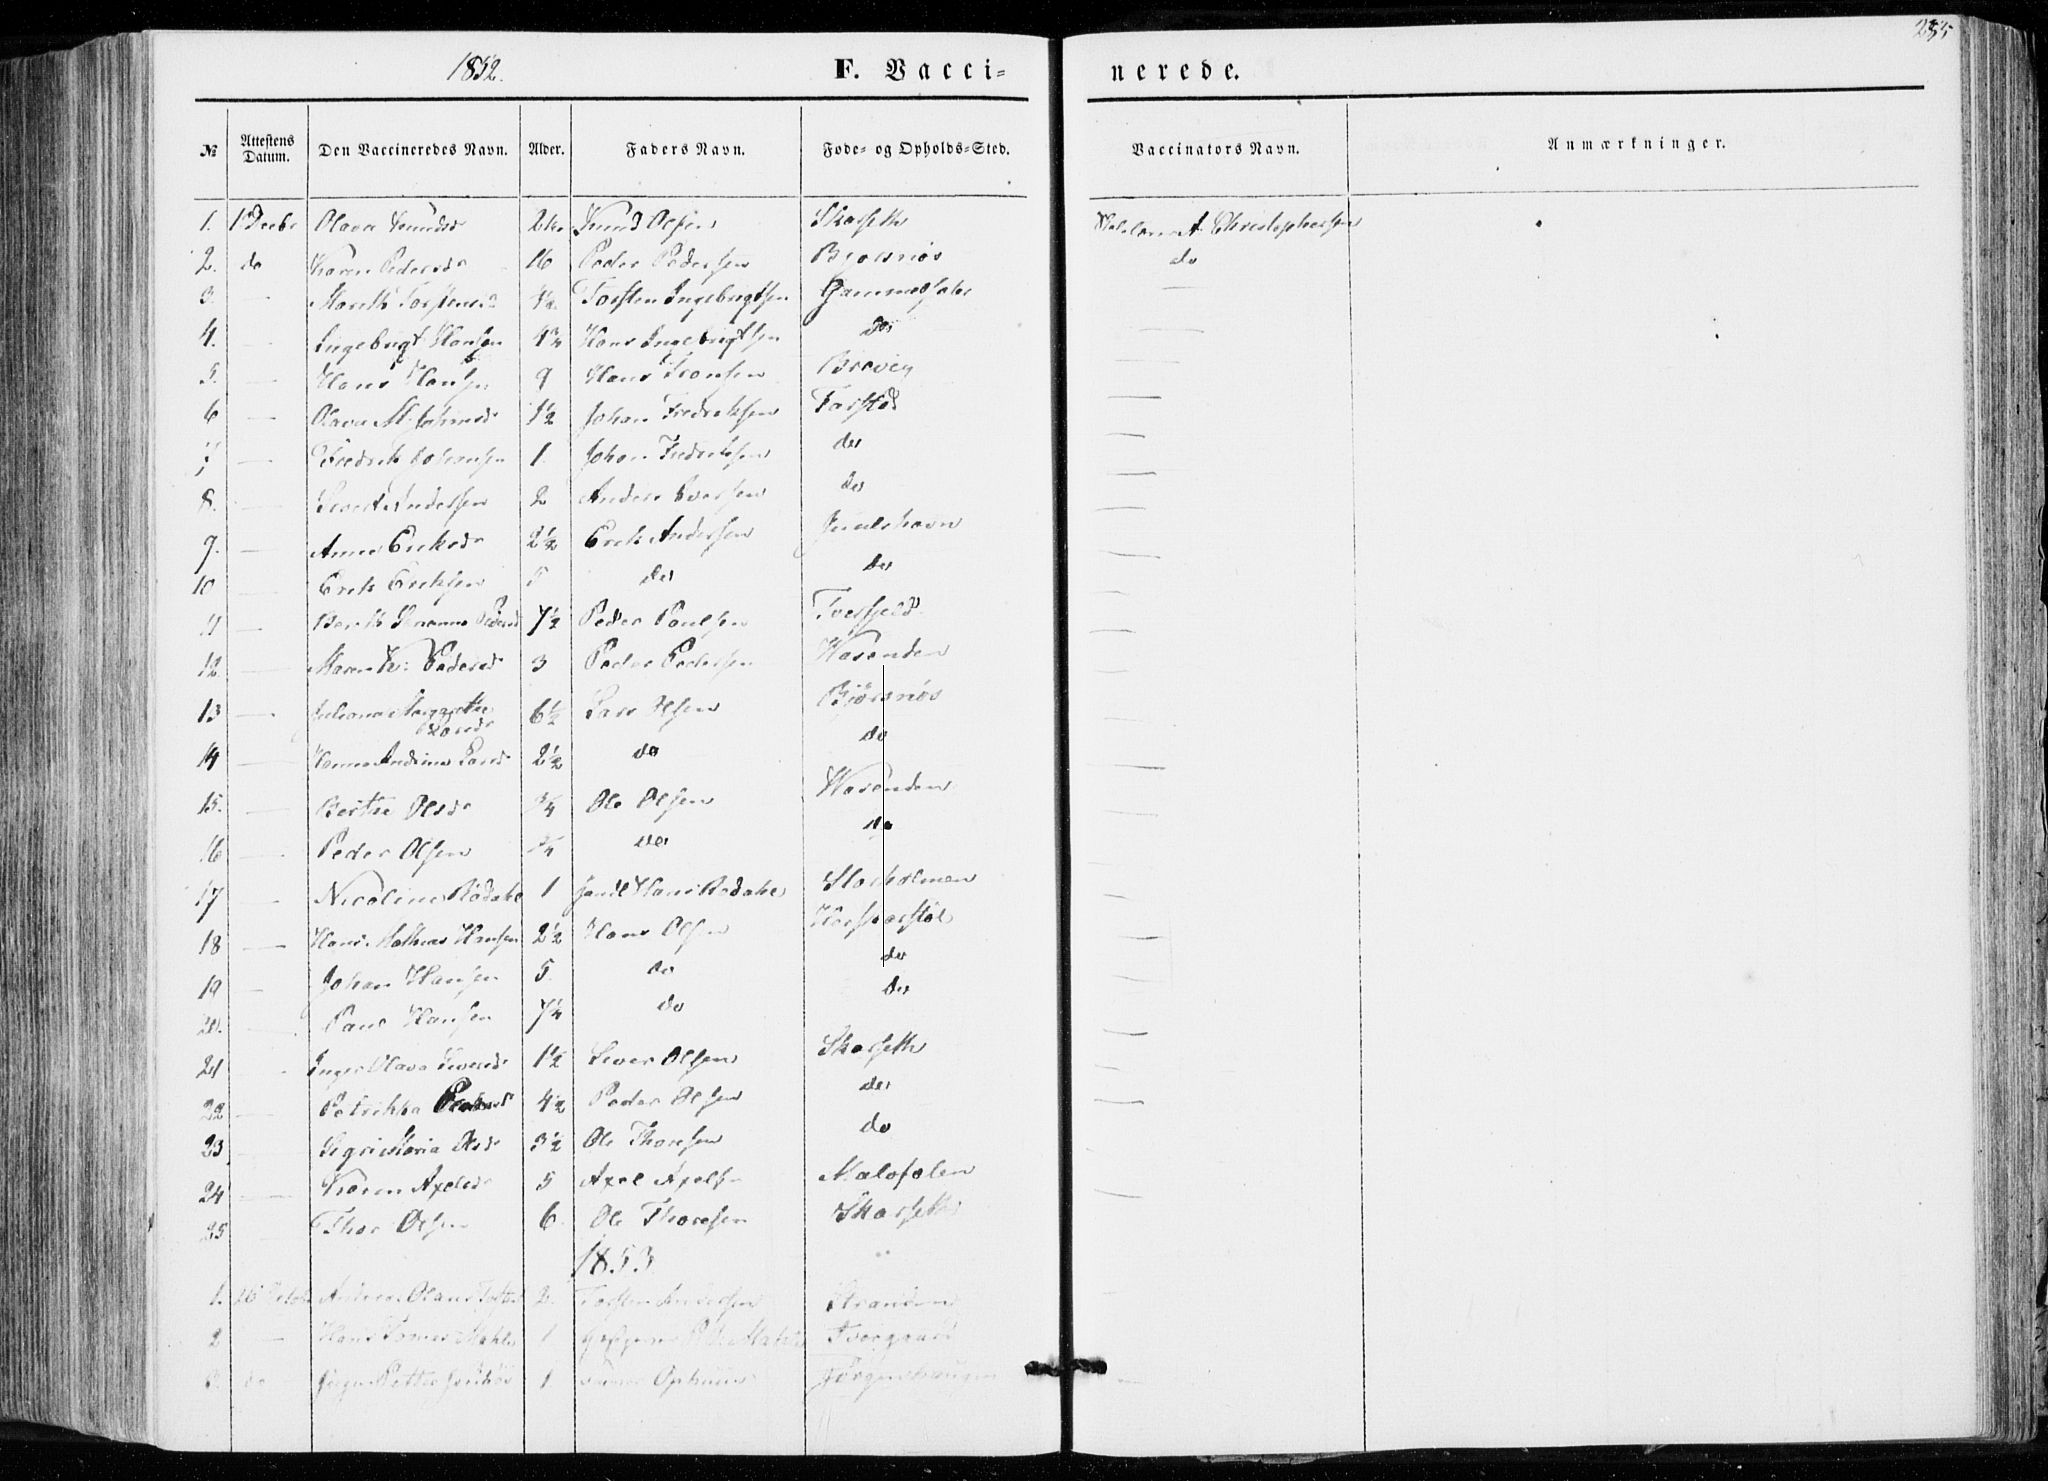 1852.
F. Vacci=
nerede.
235
№ Attestens Datum. Den Vaccineredes Navn. Alder. Faders Navn. Føde= og Opholds=Sted. Vaccinators Navn. Anmærkninger.
1. 1 Decbr Olava Knudsd Knud Olsen Skarseth Christophersen
2. do Karen Pedersd 16 Peder Pedersen Bjørnnøs do
3. Marith Torstensd Torsten Ingebrigtsen
4. Ingebrigt Hansen Hans Ingebrigtsen do
5. Hans Hansen 9 Hans Fransen Brevig
6 Olava M. Johansd 1½ Johan Fredriksen Farstad
7 Fredrik Johansen 1. Johan Fredriksen do
8. Andersen 2 Anders Iversen do
9. Anne Eriksd 2½ Erik Andersen Juulshavn
10 Erik Eriksen 5 do do
11 Berith Pedersd 7½ Peder Paulsen Tverfjeld
12. Maren Pedersd 3 Peder Pedersen Vasenden
13 Juliana Margrethe Larsd 6½ Lars Olsen Bjørnnøs
14 Hanna Andrina Larsd 2½ do do
15. Berthe Olsd ¾ Ole Olsen Vasenden
16 Peder Olsen ¾ do do
17 Nicoline Rødahl 1 Hans Rødahl Storholmen
18 Hans Mathias Hansen 2½ Hans Olsen
19 Johan Hansen 5. do do
20. Paul Hansen do do
21 Inger Olava Siversd 1½ Siver Olsen Skarseth
22 Petrikka Pedersd 4½ Peder Olsen do
23 Maria Olsd 3½ Ole Thoresen do
24 Karen Axelsd 5 Axel Axels Malefolen
25 Thor Olsen 6. Ole Thoresen Skarseth
1853
1. 2. Torsten Andersen Stranden
2 Hans 1
3. do Petter 1 Ophuus Jørgenshaugen